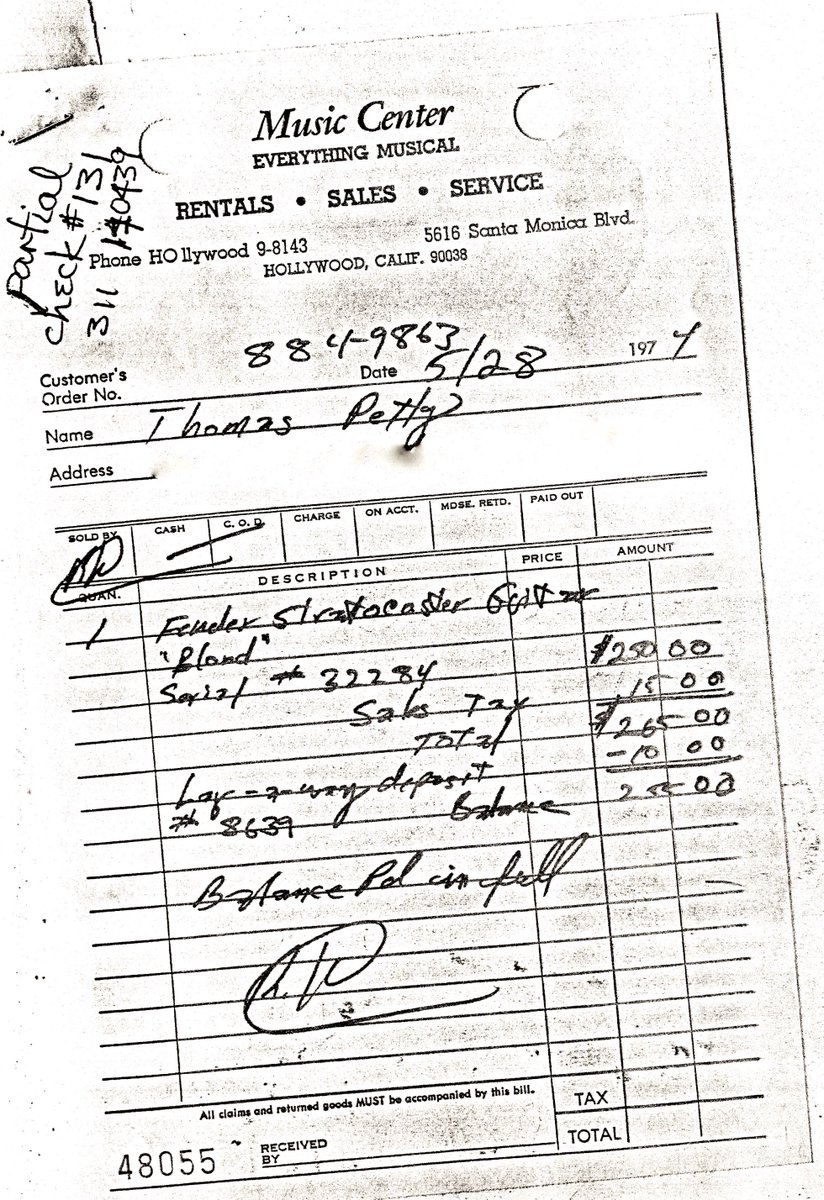 Partial
check #131
311 140439
Music Center
EVERYTHING MUSICAL
RENTALS • SALES • SERVICE
Phone HOllywood 9-8143
5616 Santa Monica Blvd.
HOLLYWOOD, CALIF. 90038
Customer's Order No. 884-9863 Date 5/28 197
Name Thomas Petty
Address
SOLD BY CASH C. O. D. CHARGE ON ACCT. MDSE. RETD. PAID OUT
QUAN. DESCRIPTION PRICE AMOUNT
1 Fender Stratocaster Guitar
"Blond" $250 00
Serial # 32284 15 00
Sales Tax $265 00
Total -10 00
Lay-a-way deposit 255 00
# 8639 Balance
Balance Pd in full
All claims and returned goods MUST be accompanied by this bill.
TAX
48055 RECEIVED BY TOTAL